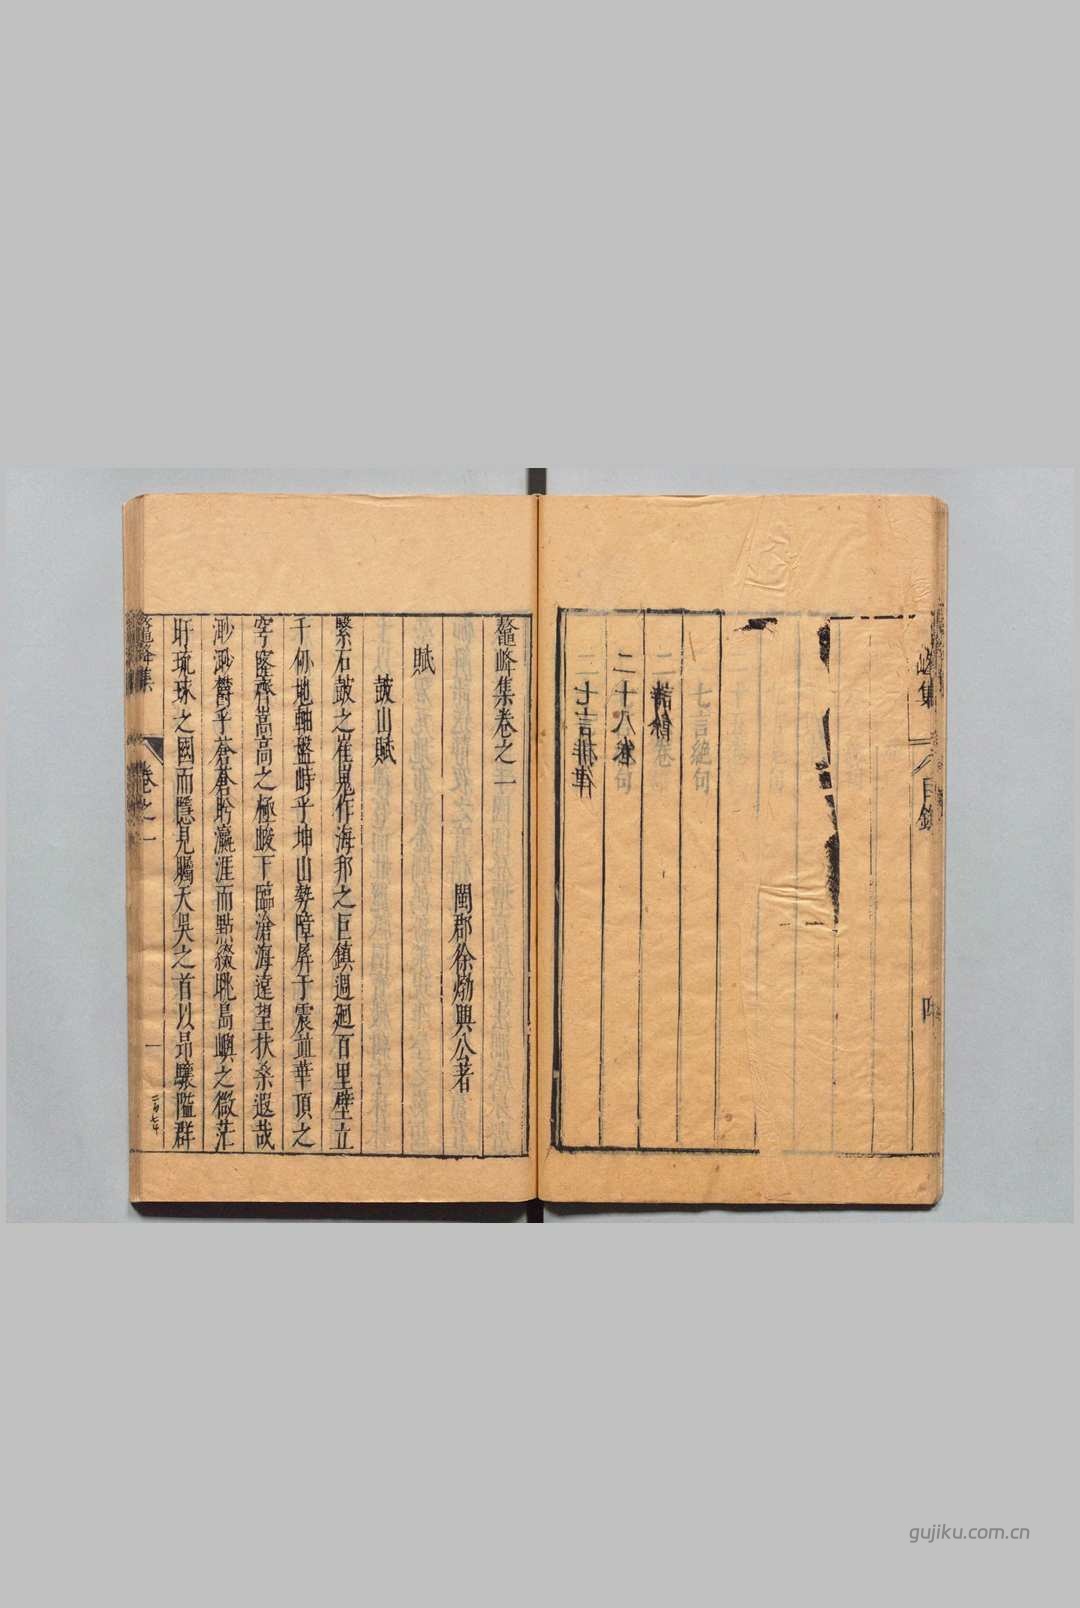 峰集
目錄
四
七言絕句
詩餘
二十八卷
七言排律
鼇峰集卷之一
閩郡徐㶿興公著
賦
鼓山賦
繄石鼓之崔嵬作海邦之巨鎮週廻百里壁立
千仞地軸盤峙乎坤山勢障屏于震並華頂之
穹窿齊嵩高之極峻下臨滄海遠望扶桑遐哉
渺渺鬱乎蒼蒼盻瀛涯而點綴眺島嶼之微茫
盱琉球之國而隱見矚天吳之首以昂驤隘群
鼇峰集
卷之一
一
gujiku.com.cn